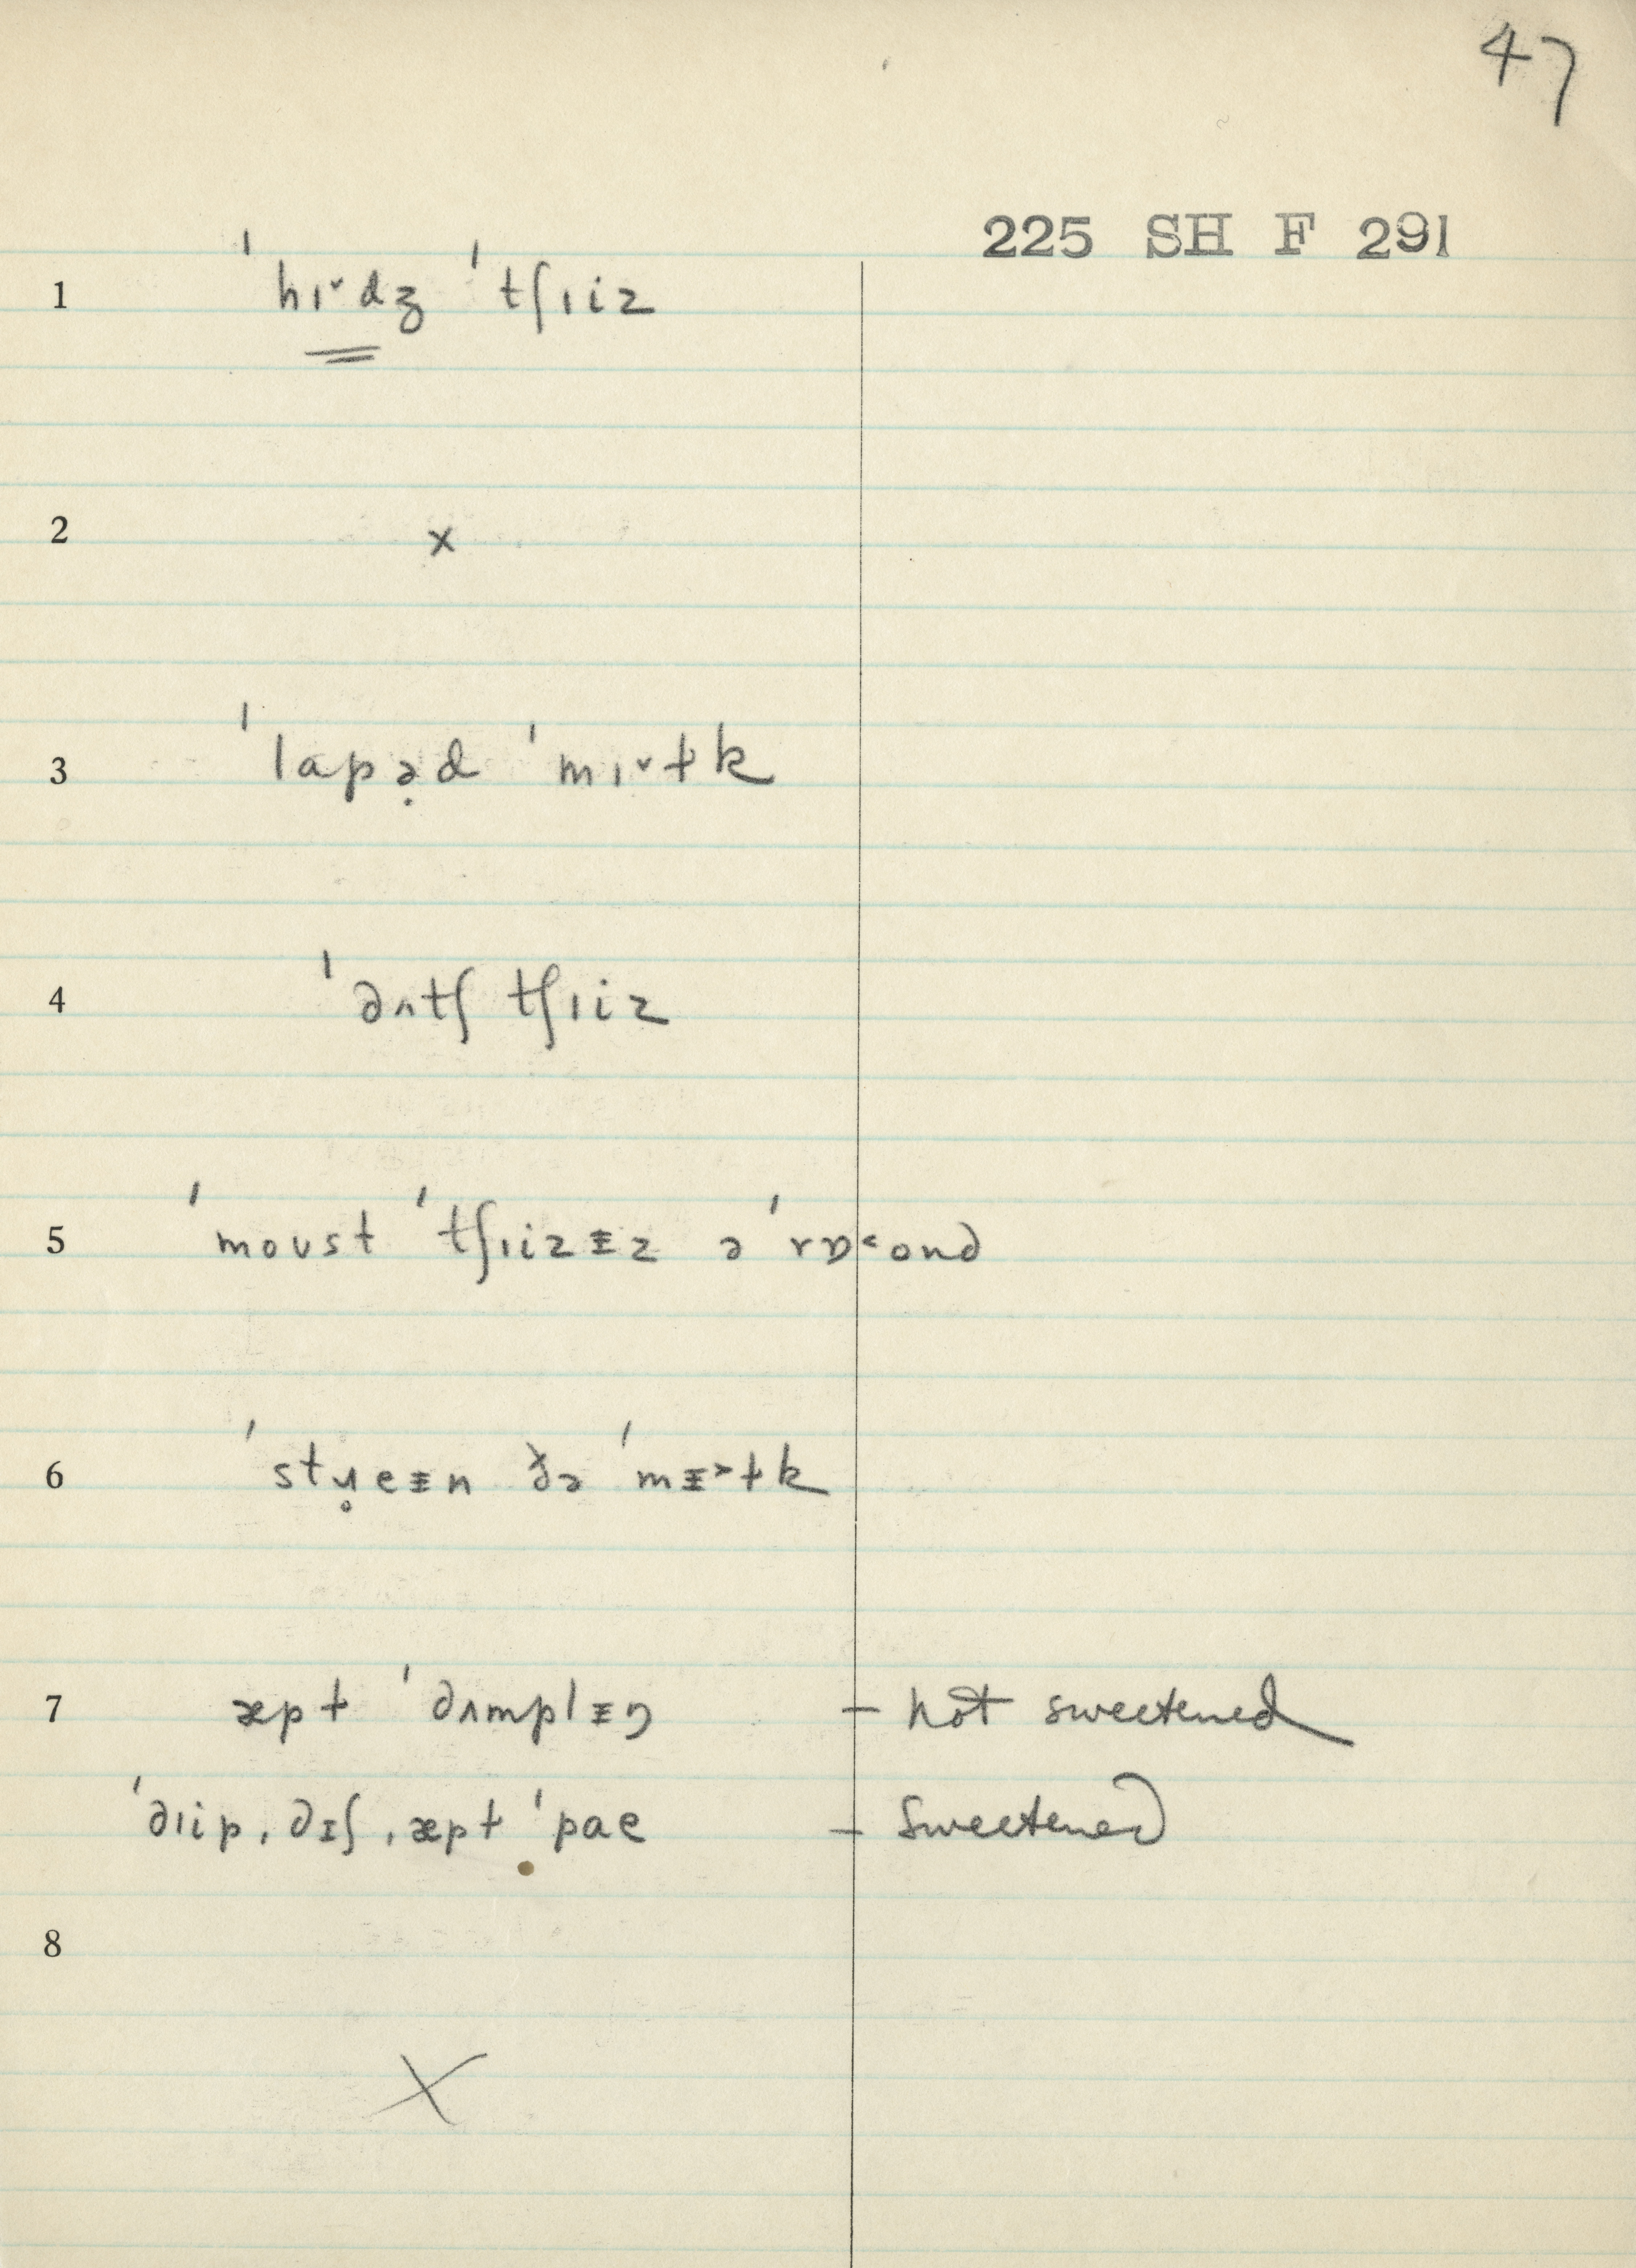 47
225 SH F 291
1 ˈhɪ˅dʒ ˈtʃɪiz
2 x
3 ˈlapə̣d ˈmɪ˅ɫk
4 ˈdʌtʃ tʃɪiz
5 ˈmoust ˈtʃɪizᵻz əˈrɒ˂ond
6 ˈstɹ̥eᵻn ðə ˈmᵻ˃ɫk
7 æpɫ ˈdʌmplᵻŋ – not sweetened
ˈdɪip ˌdɪʃ ˌæpɫ ˈpae – sweetened
8
X